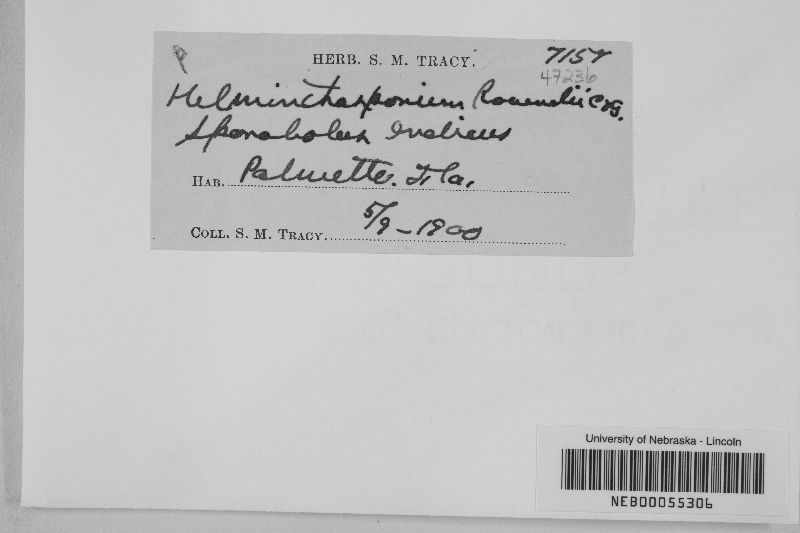 P
HERB. S. M. TRACY. 7157
47236
Helminthosporium Ravenelii C&G.
Sporobolus Indicus
HAB. Palmetto. Fla.
5/9-1900
COLL. S. M. TRACY.
University of Nebraska - Lincoln
NEB00055306